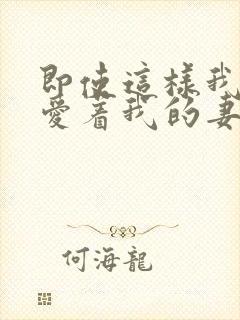 即使這樣我
愛著我的妻
何海龍